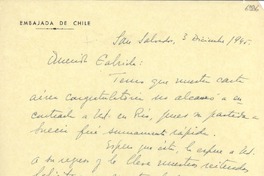 EMBAJADA DE CHILE
San Salvador, 3 Diciembre/1945.
Querida Gabriela:
Temo que nuestra carta
aérea congratulatoria no alcanzó a ser
contestada a Ud. en Río, pues su partida a
Suecia fué sumamente rápida.
Espero que ésta, la espere a Ud.
a su regreso y le lleve nuestras reiteradas